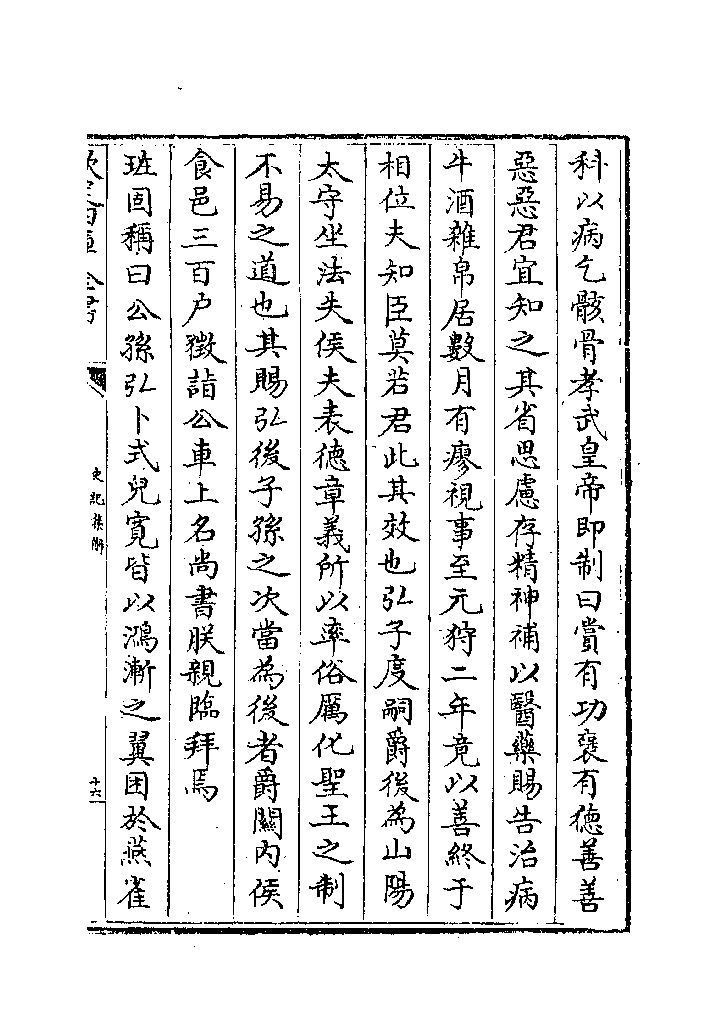 科以病乞骸骨孝武皇帝即制曰賞有功襃有徳善善
惡惡君宜知之其省思慮存精神補以醫藥賜告治病
牛酒雜帛居數月有瘳視事至元狩二年竟以善終于
相位夫知臣莫若君此其效也弘子度嗣爵後為山陽
太守坐法失侯夫表徳章義所以率俗厲化聖王之制
不易之道也其賜弘後子孫之次當為後者爵關内侯
食邑三百户徴詣公車上名尚書朕親臨拜焉
班固稱曰公孫弘卜式兒寛皆以鴻漸之翼困於燕雀
全書
史記集解
十六